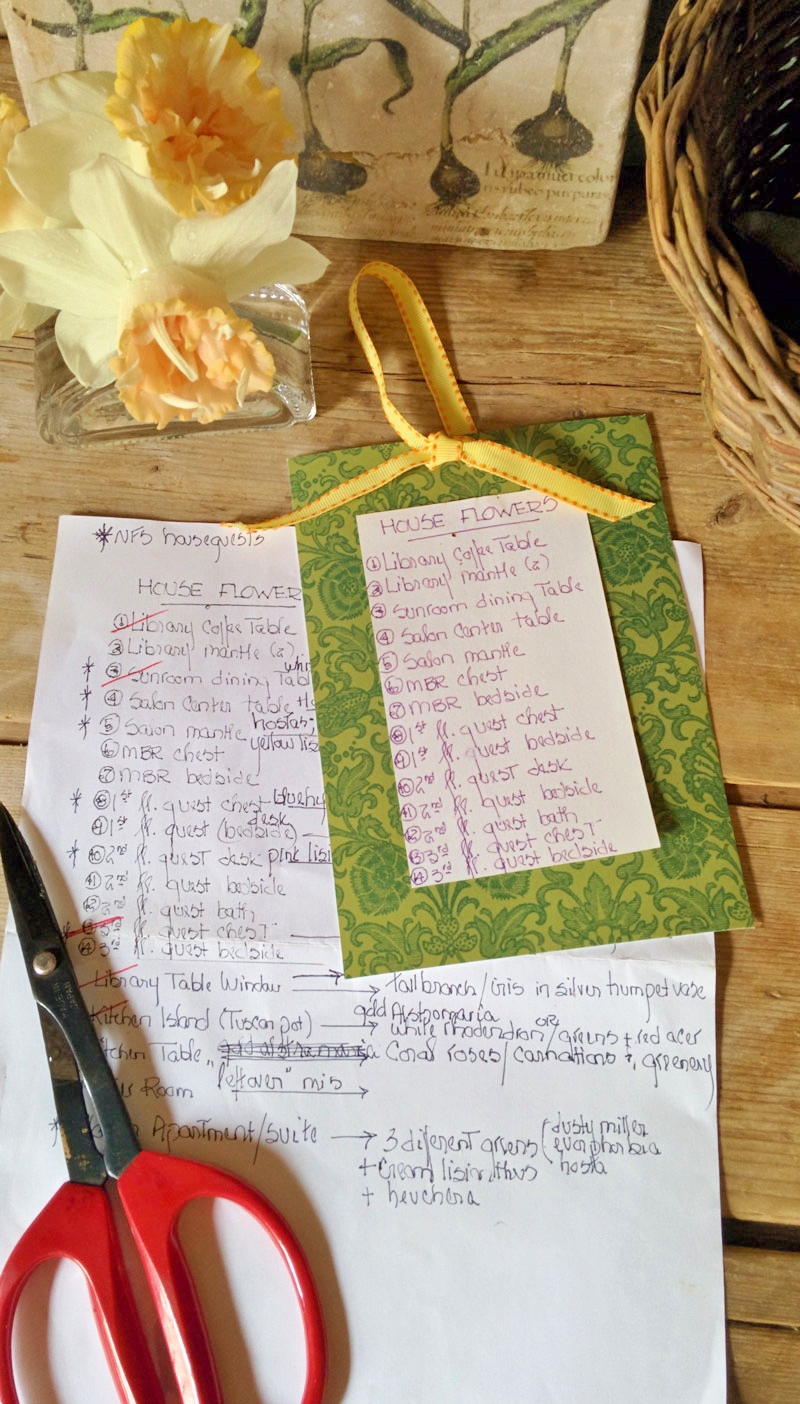 HOUSE FLOWERS
① Library Coffee Table
② Library mantle (2)
③ Sunroom dining Table
④ Salon Center table
⑤ Salon mantle
⑥ MBR chest
⑦ MBR bedside
⑧ 1st fl. guest chest
⑨ 1st fl. guest bedside
⑩ 2nd fl. guest desk
⑪ 2nd fl. guest bedside
⑫ 2nd fl. guest bath
⑬ 3rd fl. guest chest
⑭ 3rd fl. guest bedside
* NFS houseguests
HOUSE FLOWER
① Library Coffee Table
② Library mantle (2)
* ③ Sunroom dining Tabl
* ④ Salon Center table
* ⑤ Salon mantle hostas,
yellow lis
⑥ MBR chest
⑦ MBR bedside
* ⑧ 1st fl. guest chest
desk
⑨ 1st fl. guest (bedside)
* ⑩ 2nd fl. guest desk pink lisi
⑪ 2nd fl. guest bedside
⑫ 2nd fl. guest bath
* ⑬ 3rd fl. guest chest
⑭ 3rd fl. guest bedside
Library Table Window → tall branch / iris in silver trumpet vase
add Alstromaria
Kitchen Island (Tuscan pot) → white rhodendron OR / greens + red acer
tchen Table, Coral roses / carnations +, greenery
Room "leftover" mis →
* Apartment/suite → 3 different greens (dusty miller
euorphorbia
hosta
+ Cream lisinthus
+ heuchera
JAPAN